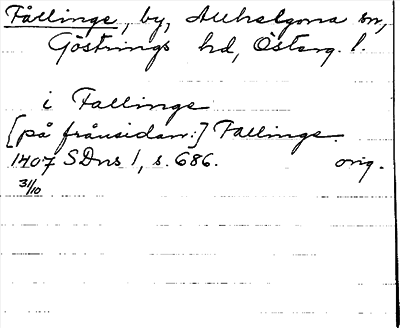 Fållinge, by, Allhelgona sn,
Göstrings hd, Österg. l.
i Fallinge
[på frånsidan:] Fallinge.
1407 SDns 1, s. 686. orig.
31/10